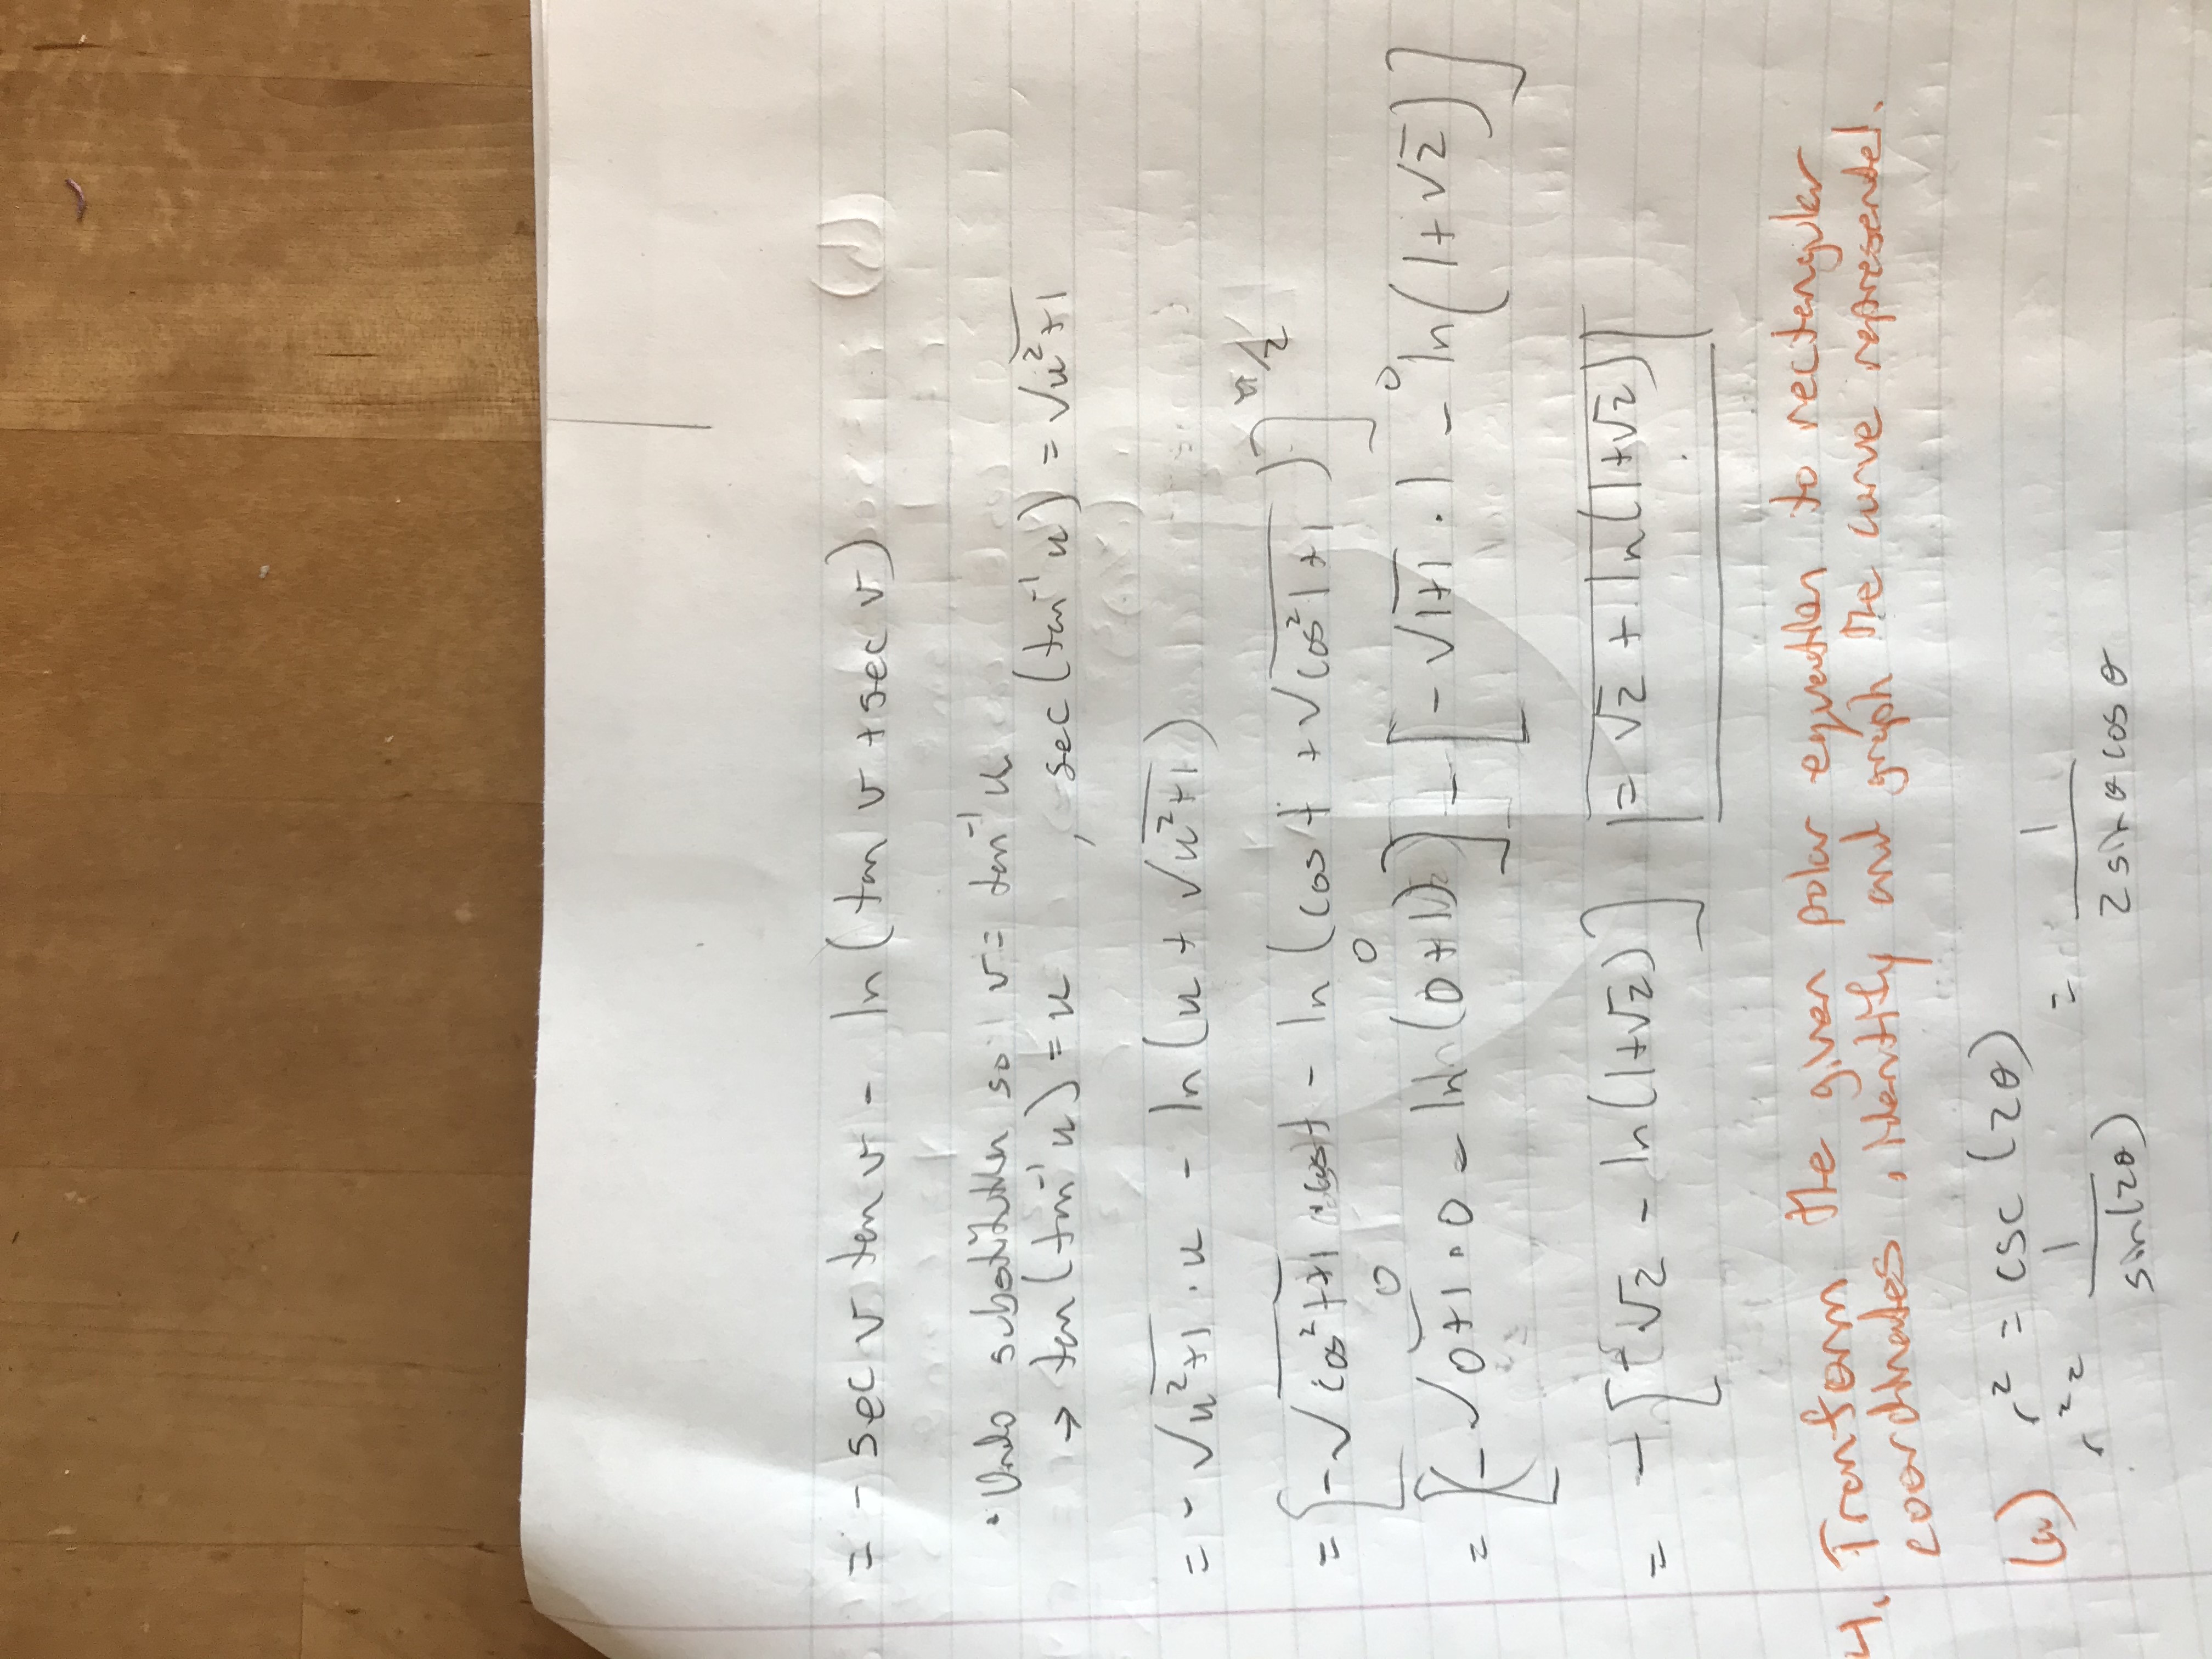 = - sec v tan v - ln(tan v + sec v)
• Undo substitution so v = tan⁻¹ u
→ tan(tan⁻¹ u) = u , sec(tan⁻¹ u) = √(u²+1)
= - √(u²+1) · u - ln(u + √(u²+1))
= [-√(cos²t+1) · cost - ln(cost + √(cos²t+1))]₀^π/2
= [(-√(0+1) · 0 - ln(0+1)] - [-√(1+1) · 1 - ln(1+√2)]
= - [-√2 - ln(1+√2)] = √2 + ln(1+√2)
4. Tranform the given polar equation to rectangular
coordinates, identify and graph the curve represented.
(a) r² = csc(2θ)
r² = 1/sin(2θ) = 1/(2sinθcosθ)